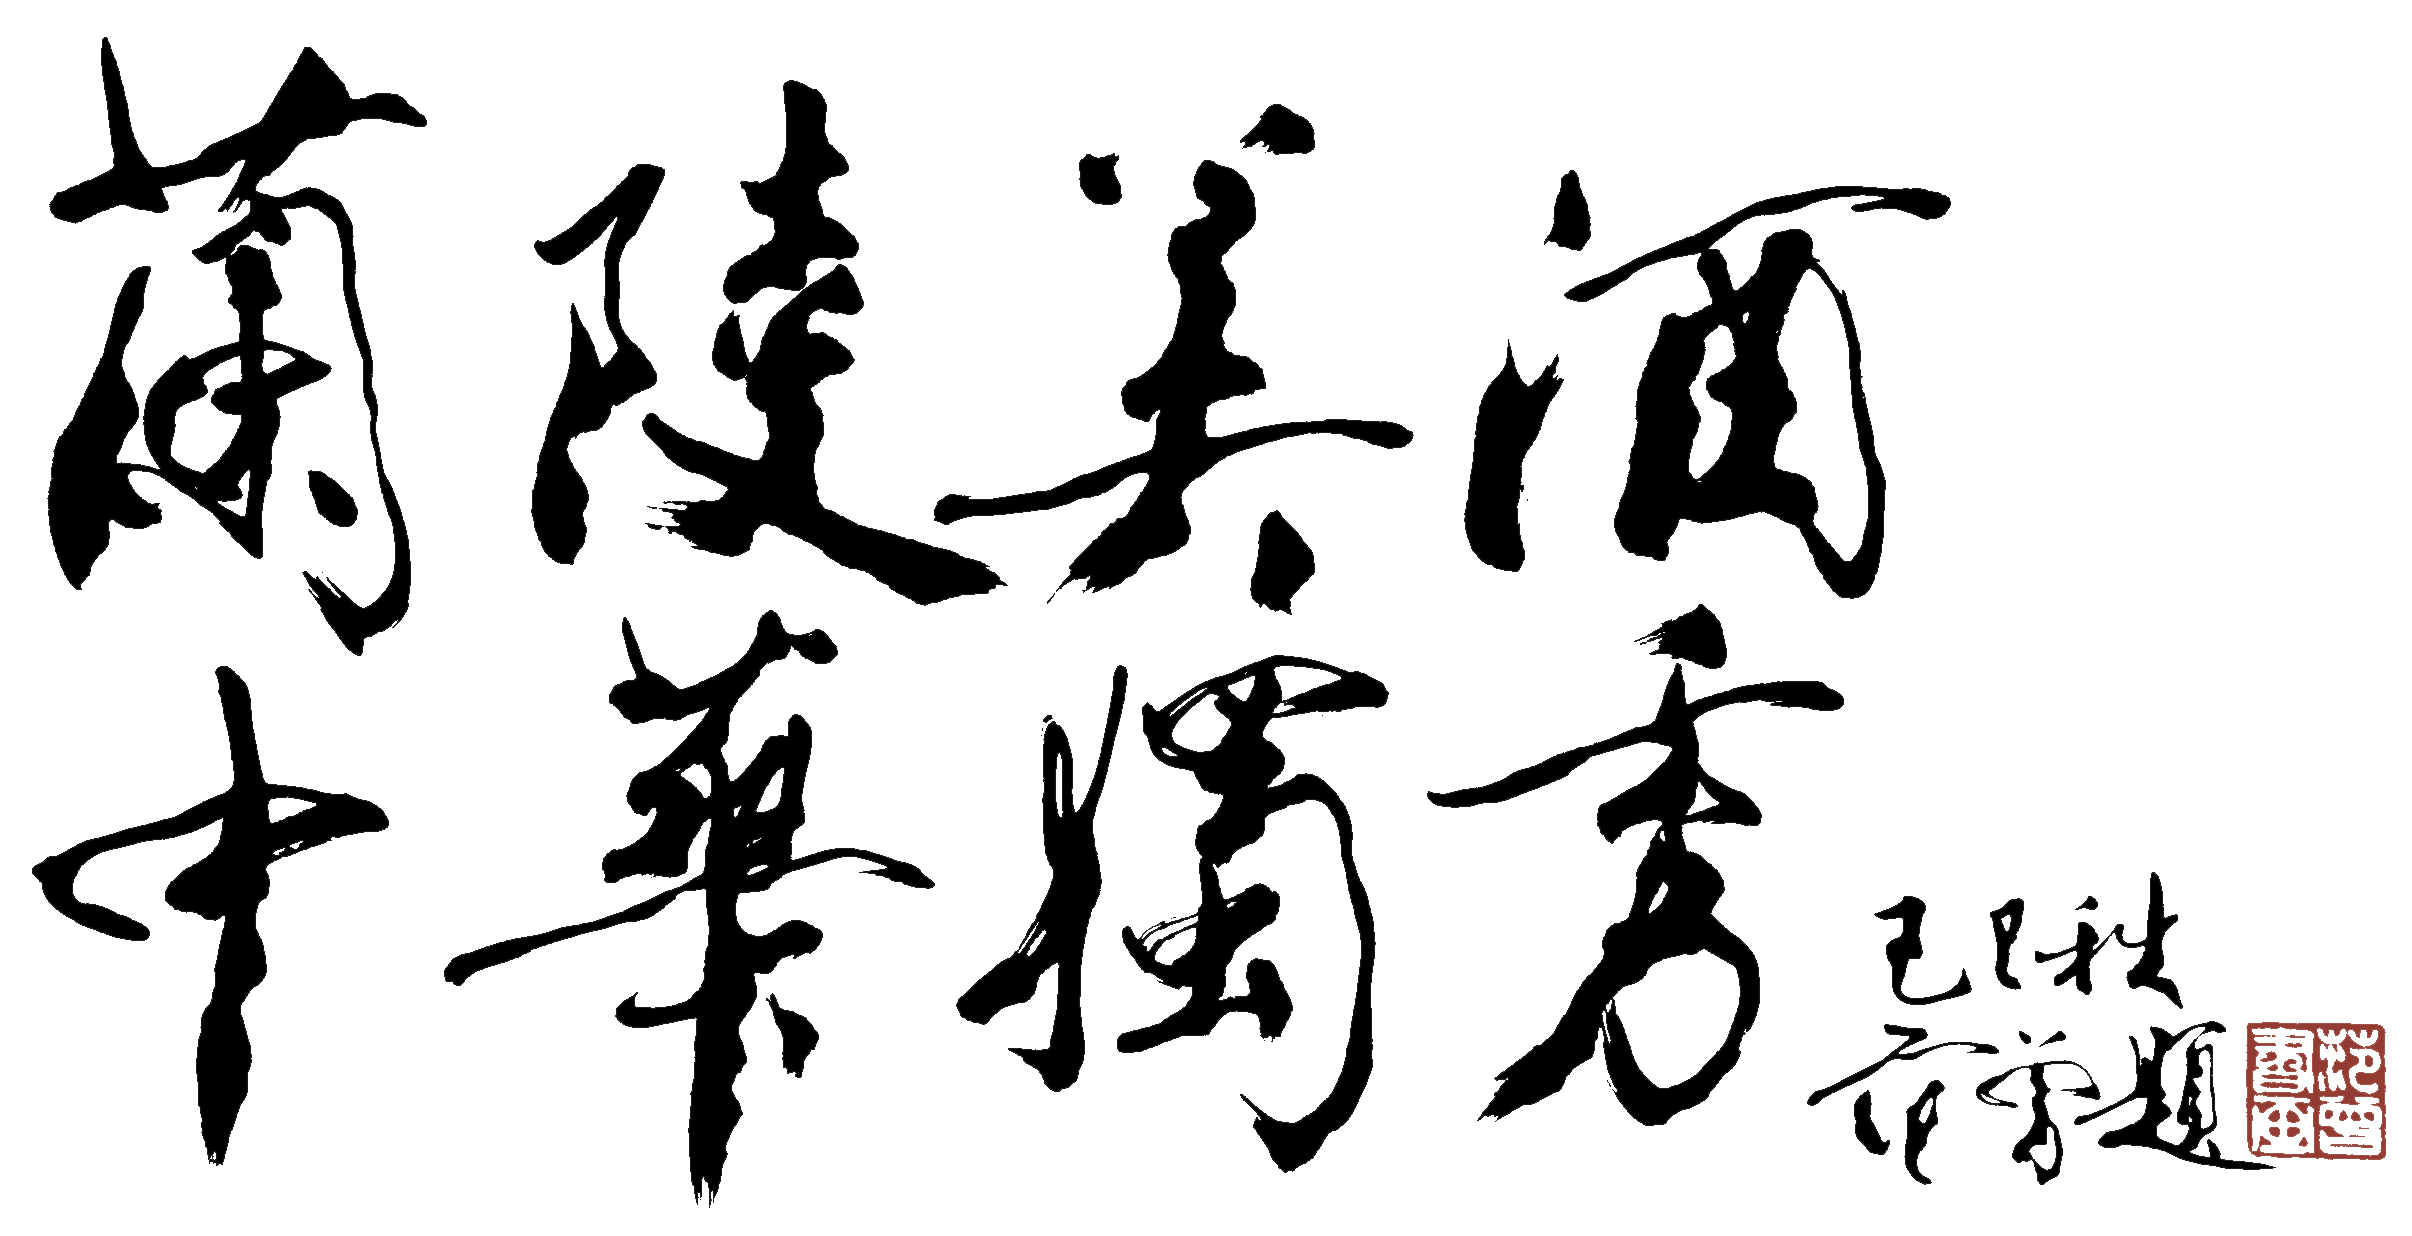 蘭陵美酒
中華獨秀
己巳秋
范曾題